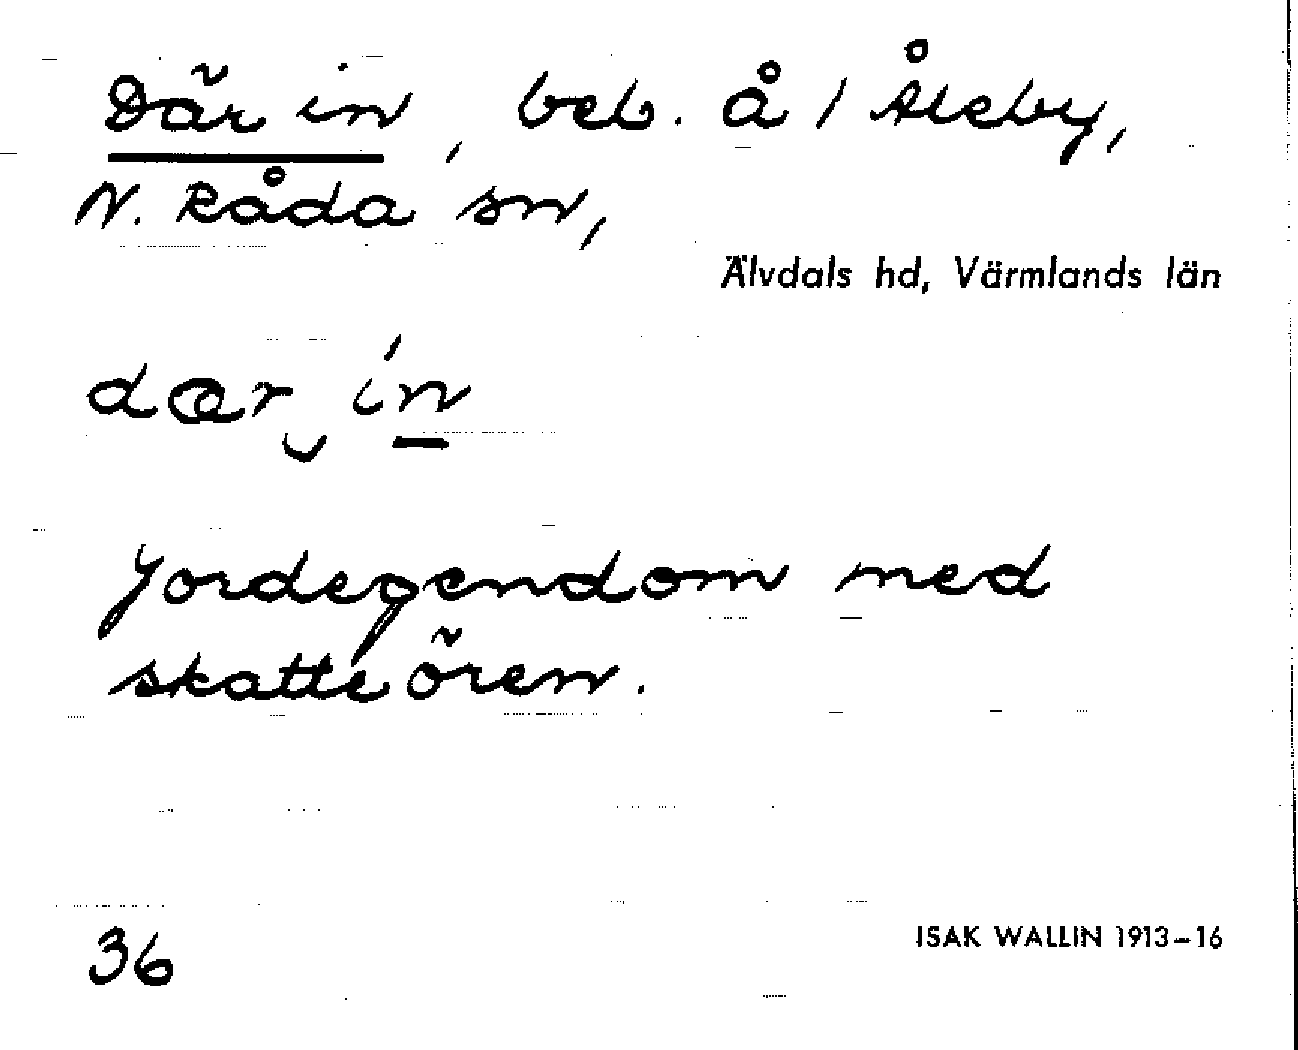 Där in, beb. å 1 Åleby,
N. Råda sn,
Älvdals hd, Värmlands län
dær in
Jordegendom med
skatteören.
36
ISAK WALLIN 1913–16